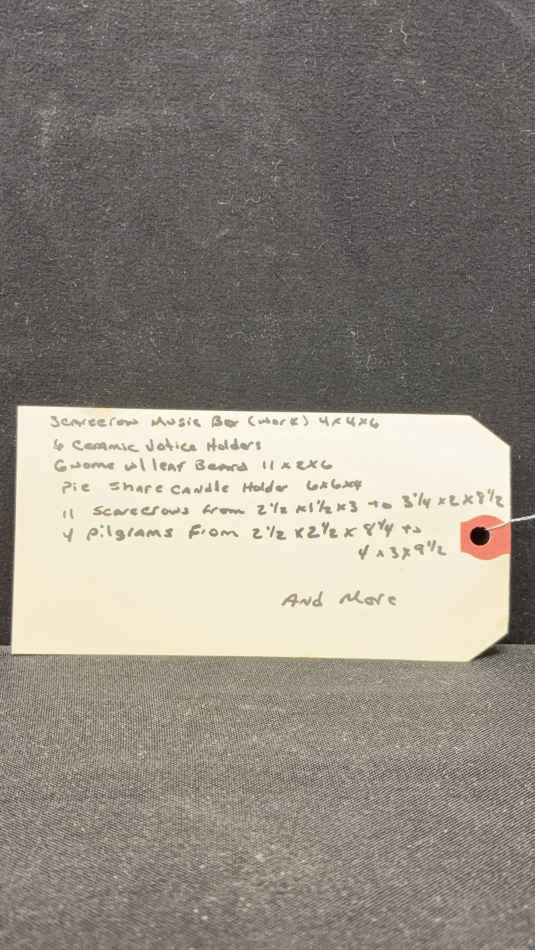 Scarecrow Music Box (work) 4x4x6
6 Ceramic Votice Holders
Gnome w/ leaf Beard 11x2x6
Pie Shape Candle Holder 6x6x4
11 Scarecrows from 2 1/2 x 1 1/2 x 3 to 3 1/4 x 2 x 8 1/2
4 Pilgrams From 2 1/2 x 2 1/2 x 8 1/4 to
4 x 3 x 9 1/2
And More